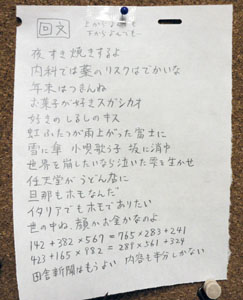 回文
夜、すき焼きするよ
内科では薬のリスクはでかいな
年末はつまんね
お菓子が好きスガシカオ
好きのしるしのキス
虹ふたつが雨上がった富士に
雪に傘 小唄歌う子 坂に消ゆ
世界を崩したいなら泣いた雫を生かせ
任天堂がうどん店に
旦那もホモなんだ
イタリアでもホモでありたい
世の中ね、顔かお金かなのよ
142+382×567=765×283+241
423+165×982=289×561+324
田舎新聞はもうよい 内容も半分しかない